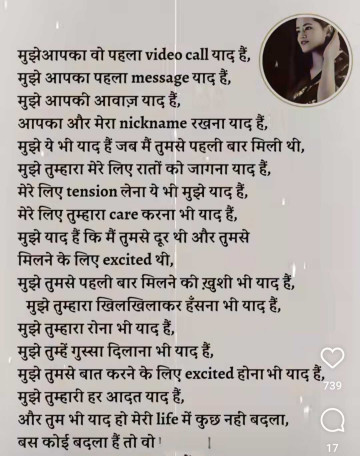 मुझेआपका वो पहला video call याद हैं,
मुझे आपका पहला message याद हैं,
मुझे आपकी आवाज़ याद हैं,
आपका और मेरा nickname रखना याद हैं,
मुझे ये भी याद हैं जब मैं तुमसे पहली बार मिली थी,
मुझे तुम्हारा मेरे लिए रातों को जागना याद हैं,
मेरे लिए tension लेना ये भी मुझे याद हैं,
मेरे लिए तुम्हारा care करना भी याद हैं,
मुझे याद हैं कि मैं तुमसे दूर थी और तुमसे
मिलने के लिए excited थी,
मुझे तुमसे पहली बार मिलने की ख़ुशी भी याद हैं,
मुझे तुम्हारा खिलखिलाकर हँसना भी याद हैं,
मुझे तुम्हारा रोना भी याद हैं,
मुझे तुम्हें गुस्सा दिलाना भी याद हैं,
मुझे तुमसे बात करने के लिए excited होना भी याद हैं,
मुझे तुम्हारी हर आदत याद हैं,
और तुम भी याद हो मेरी life में कुछ नही बदला,
बस कोई बदला हैं तो वो
739
17